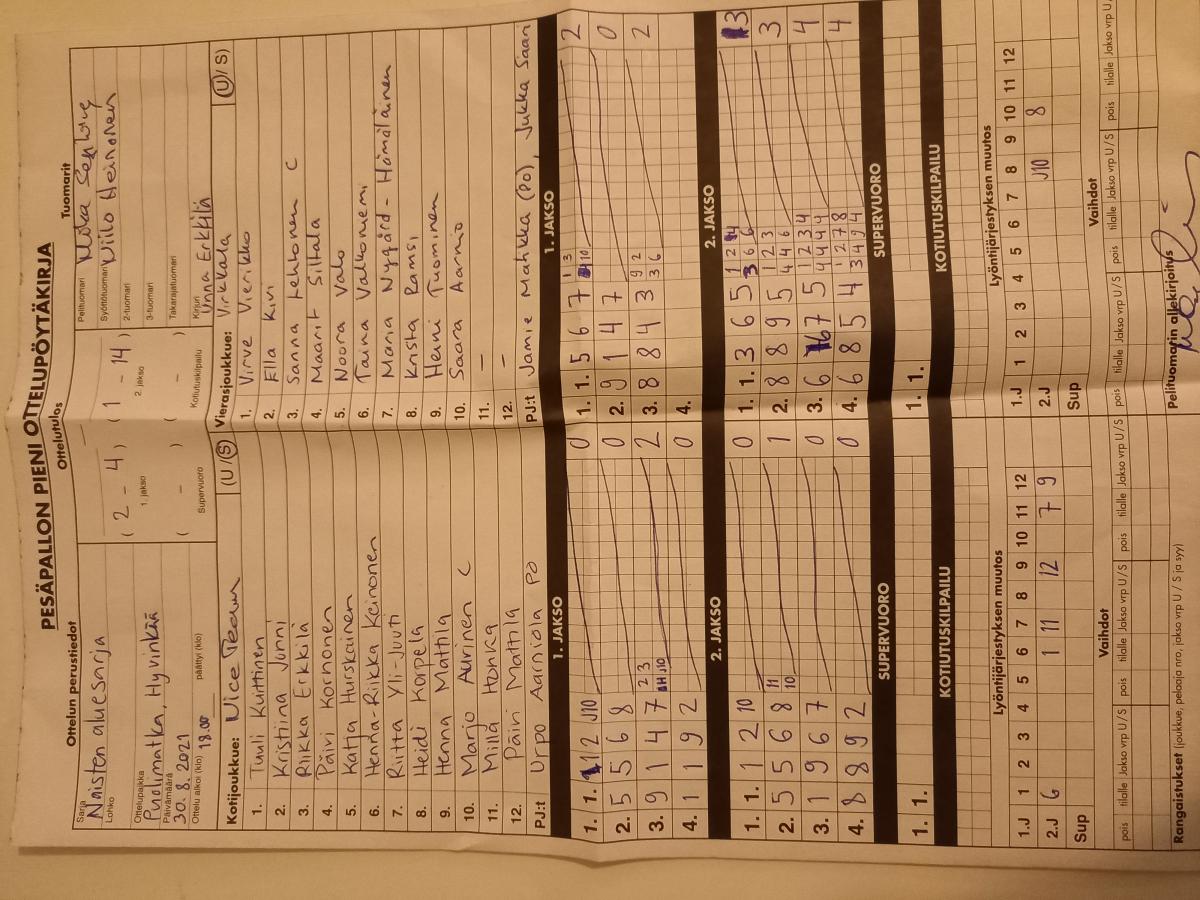 PESÄPALLON PIENI OTTELUPÖYTÄKIRJA
Ottelun perustiedot
Sarja
Naisten aluesarja
Lohko
Ottelupaikka
Puolimatka, Hyvinkää
Päivämäärä
30.8.2021
Ottelu alkoi (klo) 18.00 päättyi (klo)
Ottelutulos
( 2 - 4 ) ( 1 - 14 )
1. jakso 2. jakso
( - ) ( - )
Supervuoro Kotiutuskilpailu
Tuomarit
Pelituomari
Syöttötuomari Viilo Heinonen
2-tuomari
3-tuomari
Takarajatuomari
Kirjuri Unna Erkkilä
Kotijoukkue: Nice Team (U/S)
1. Tuuli Kuittinen
2. Kristiina Junni
3. Riikka Erkkilä
4. Päivi Kornonen
5. Katja Hurskainen
6. Henna-Riikka Keinonen
7. Riitta Yli-Juuti
8. Heidi Korpela
9. Henna Mattila
10. Marjo Aurinen C
11. Milja Honka
12. Päivi Mattila
PJ:t Urpo Aarniola PO
1. JAKSO
1. 1. 1 2 J10 0
2. 5 5 6 8 0
3. 9 1 4 7 2
4. 1 9 2 0
2. JAKSO
1. 1. 1 2 10 0
2. 5 5 6 8 11 10 1
3. 1 9 6 7 0
4. 8 8 9 2 0
SUPERVUORO
1. 1.
KOTIUTUSKILPAILU
Lyöntijärjestyksen muutos
1 2 3 4 5 6 7 8 9 10 11 12
1.J
2.J 6 1 11 12 7 9
Sup
Vaihdot
pois tilalle Jakso vrp U / S pois tilalle Jakso vrp U / S pois tilalle Jakso vrp U / S
Vierasjoukkue: Virkkala (U/S)
1. Virve Vierikko
2. Ella Kivi
3. Sanna Lehtonen C
4. Maarit Siltala
5. Noora Valo
6. Taina Valkoniemi
7. Maria Nygård-Hämäläinen
8. Krista Ramsi
9. Heini Tuominen
10. Saara Aarnio
11. -
12. -
PJ:t Jamie Mahkka (PO), Jukka Saari
1. JAKSO
1. 1. 5 6 7 2
2. 9 1 4 7 0
3. 8 8 4 3 9 2 3 6 2
4.
2. JAKSO
1. 1. 3 6 5 3
2. 8 8 9 5 1 2 3 4 4 6 3
3. 6 6 7 5 1 2 3 4 4 4 4 4 4
4. 6 8 5 4 1 2 7 8 3 4 9 4 4
SUPERVUORO
1. 1.
KOTIUTUSKILPAILU
Lyöntijärjestyksen muutos
1 2 3 4 5 6 7 8 9 10 11 12
1.J
2.J J10 8
Sup
Vaihdot
pois tilalle Jakso vrp U / S pois tilalle Jakso vrp U / S pois tilalle Jakso vrp U
Rangaistukset (joukkue, pelaaja nro, jakso vrp U / S ja syy)
Pelituomarin allekirjoitus